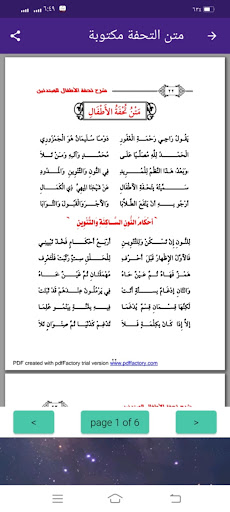 ٦:٤٩
٦٣٤
متن التحفة مكتوبة
٢٢ شرح تحفة الأطفال للمبتدئين
مَتْنُ تُحْفَةِ الأَطْفَالِ
يَقُولُ رَاجِي رَحْمَةِ الْغَفُورِ دَوْمًا سُلَيْمَانُ هُوَ الْجَمْزُورِي
الْحَمْدُ لِلَّهِ مُصَلِّيًا عَلَى مُحَمَّدٍ وَآلِهِ وَمَنْ تَلَا
وَبَعْدُ هَذَا النَّظْمُ لِلْمُرِيدِ فِي النُّونِ وَالتَّنْوِينِ وَالْمُدُودِ
سَمَّيْتُهُ بِتُحْفَةِ الأَطْفَالِ عَنْ شَيْخِنَا الْمِيهِيِّ ذِي الْكَمَالِ
أَرْجُو بِهِ أَنْ يَنْفَعَ الطُّلَّابَا وَالأَجْرَ وَالْقَبُولَ وَالثَّوَابَا
أَحْكَامُ النُّونِ السَّاكِنَةِ وَالتَّنْوِينِ
لِلنُّونِ إِنْ تَسْكُنْ وَلِلتَّنْوِينِ أَرْبَعُ أَحْكَامٍ فَخُذْ تَبْيِينِي
فَالأَوَّلُ الإِظْهَارُ قَبْلَ أَحْرُفِ لِلْحَلْقِ سِتٍّ رُتِّبَتْ فَلْتَعْرِفِ
هَمْزٌ فَهَاءٌ ثُمَّ عَيْنٌ حَاءُ مُهْمَلَتَانِ ثُمَّ غَيْنٌ خَاءُ
وَالثَّانِ إِدْغَامٌ بِسِتَّةٍ أَتَتْ فِي يَرْمُلُونَ عِنْدَهُمْ قَدْ ثَبَتَتْ
لَكِنَّهَا قِسْمَانِ قِسْمٌ يُدْغَمَا فِيهِ بِغُنَّةٍ بِيَنْمُو عُلِمَا
إِلَّا إِذَا كَانَ بِكِلْمَةٍ فَلَا تُدْغِمْ كَدُنْيَا ثُمَّ صِنْوَانٍ تَلَا
PDF created with pdfFactory trial version www.pdffactory.com
شرح تحفة الأطفال للمبتدئين
<
page 1 of 6
>